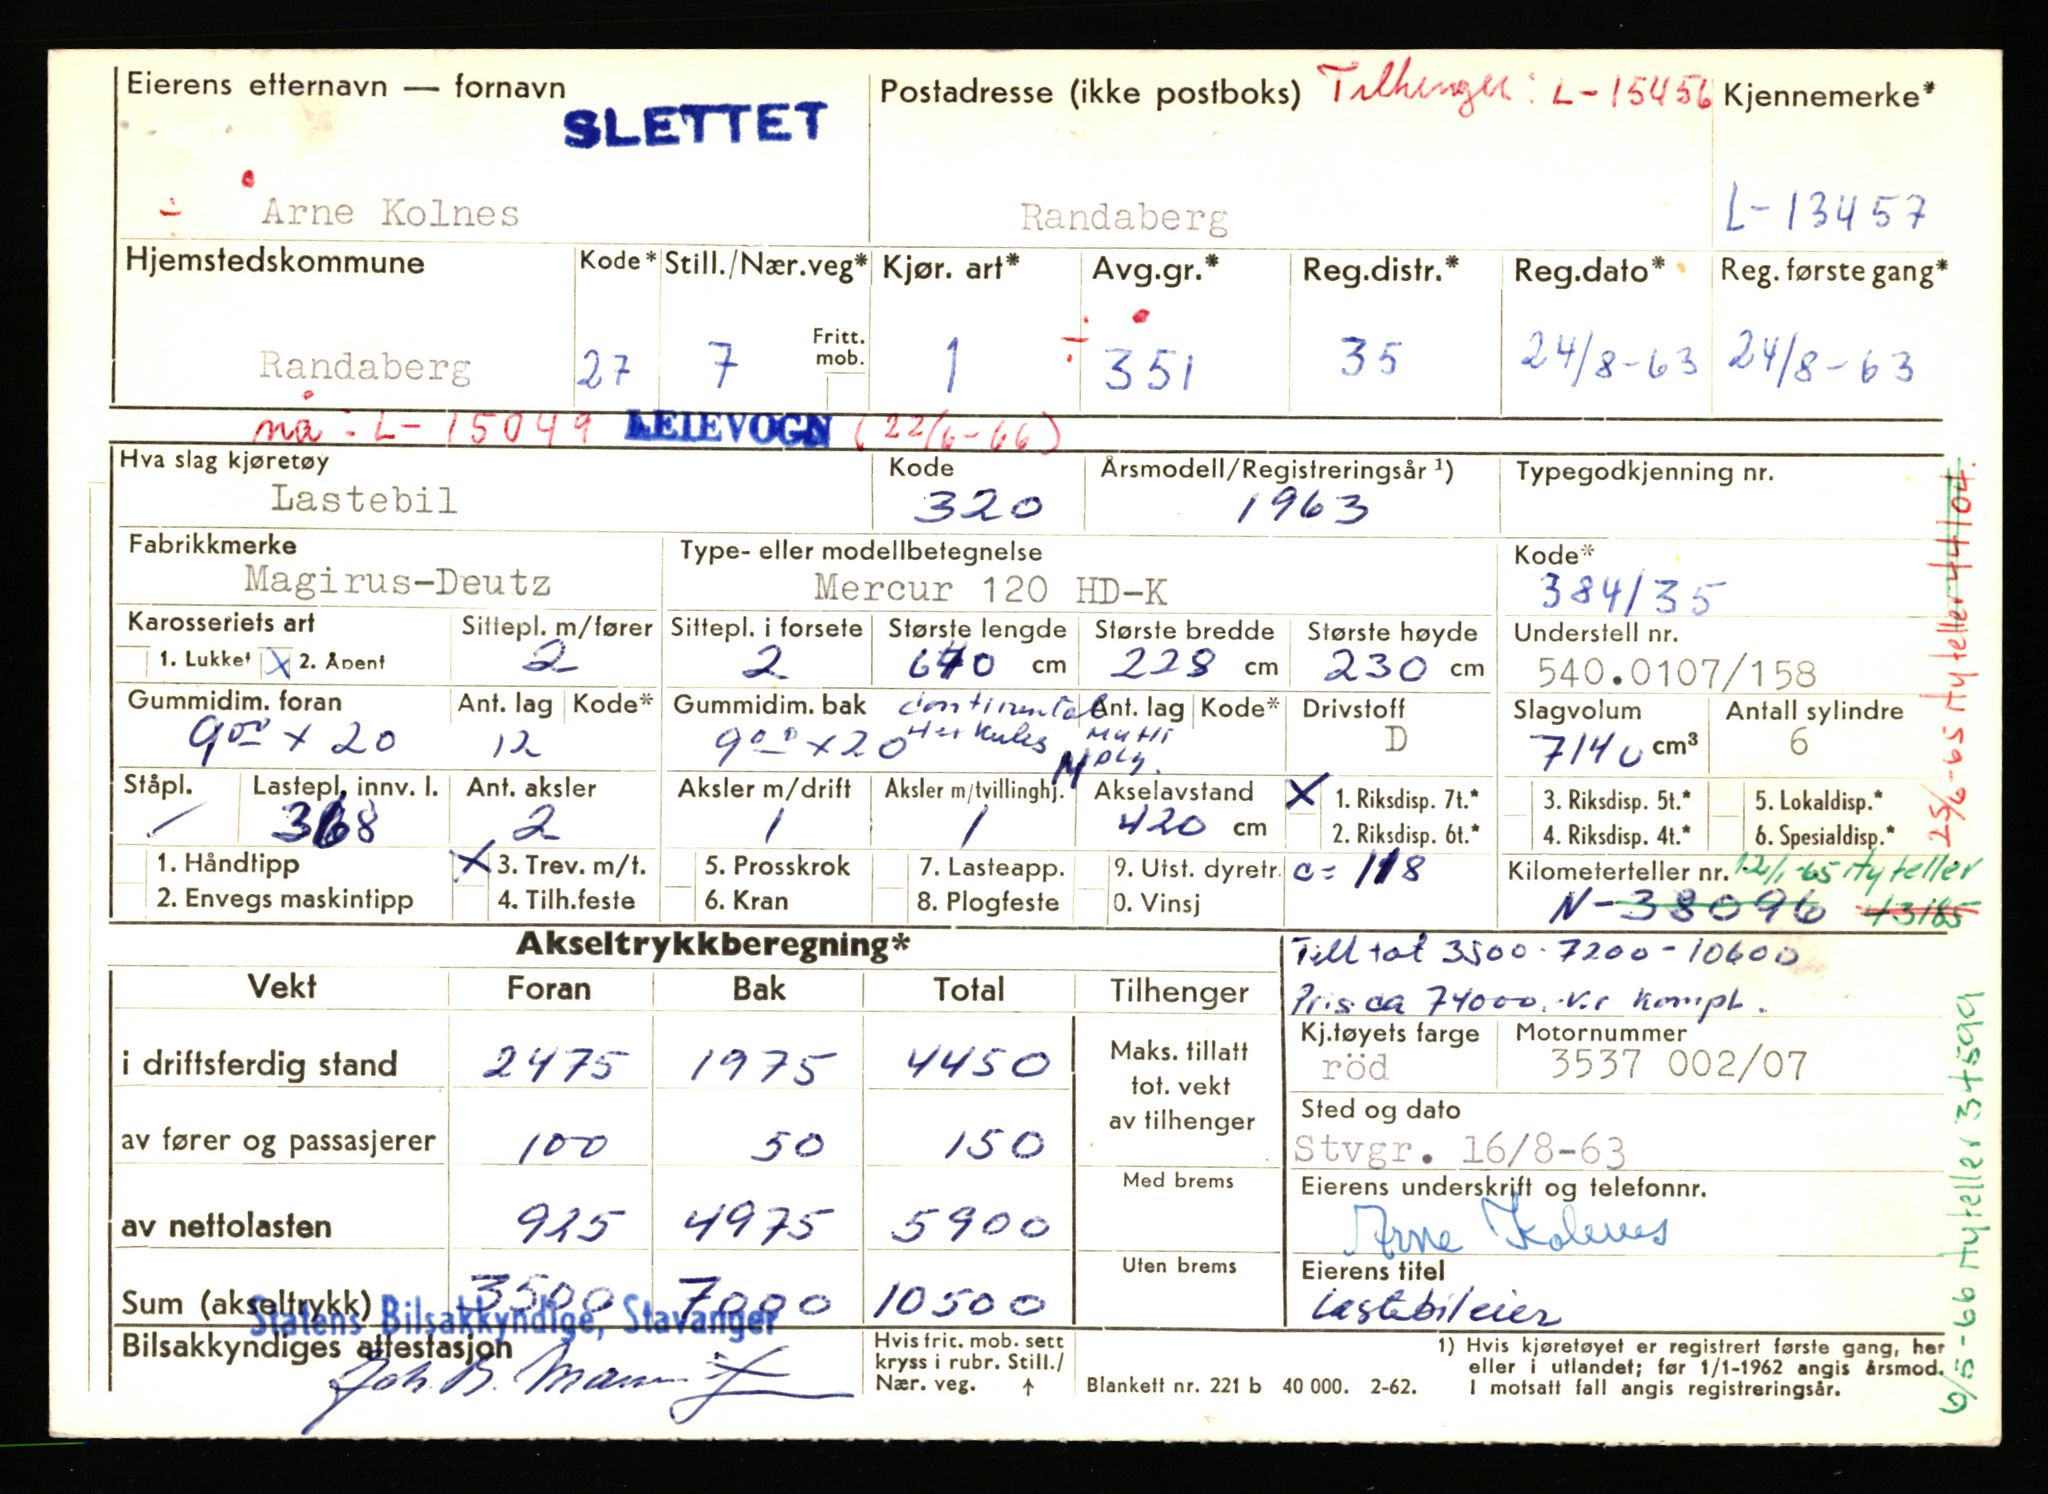 Eierens etternavn — fornavn
SLETTET
Postadresse (ikke postboks)
Tilhenger: L-15456
Kjennemerke*
÷ Arne Kolnes
Randaberg
L-13457
Hjemstedskommune Kode* Still./Nær.veg* Kjør. art* Avg.gr.* Reg.distr.* Reg.dato* Reg. første gang*
Fritt. mob.
Randaberg 27 7 1 ÷ 351 35 24/8-63 24/8-63
nå: L-15049 LEIEVOGN (22/6-66)
Hva slag kjøretøy Kode Årsmodell/Registreringsår ¹) Typegodkjenning nr.
Lastebil 320 1963
Fabrikkmerke Type- eller modellbetegnelse Kode*
Magirus-Deutz Mercur 120 HD-K 384/35
Karosseriets art Sittepl. m/fører Sittepl. i forsete Største lengde Største bredde Største høyde Understell nr.
1. Lukket X 2. Åpent 2 2 670 cm 228 cm 230 cm 540.0107/158
Gummidim. foran Ant. lag Kode* Gummidim. bak Continental Ant. lag Kode* Drivstoff Slagvolum Antall sylindre
9⁰⁰ x 20 12 9⁰⁰ x 20 Herkules D 7140 cm³ 6
Ståpl. Lastepl. innv. l. Ant. aksler Aksler m/drift Aksler m/tvillinghj. Akselavstand X 1. Riksdisp. 7t.* 3. Riksdisp. 5t.* 5. Lokaldisp.*
/ 368 2 1 1 420 cm 2. Riksdisp. 6t.* 4. Riksdisp. 4t.* 6. Spesialdisp.*
1. Håndtipp X 3. Trev. m/t. 5. Prosskrok 7. Lasteapp. 9. Utst. dyretr. c= 118 Kilometerteller nr. 12/1-65 Ny teller
2. Envegs maskintipp 4. Tilh.feste 6. Kran 8. Plogfeste 0. Vinsj N-38096 43185
25/6-65 Ny teller 44104.
Akseltrykkberegning* Till tot 3500-7200-10600
Vekt Foran Bak Total Tilhenger Pris ca 74000.- kr kompl.
i driftsferdig stand 2475 1975 4450
Maks. tillatt tot. vekt av tilhenger
Kj.tøyets farge Motornummer
röd 3537 002/07
av fører og passasjerer 100 50 150
Sted og dato
Stvgr. 16/8-63
Med brems
Eierens underskrift og telefonnr.
av nettolasten 925 4975 5900
Arne Kolnes
Uten brems
Eierens titel
Sum (akseltrykk) 3500 7000 10500
Lastebileier
Statens Bilsakkyndige, Stavanger
Bilsakkyndiges attestasjon
Hvis frit. mob. sett
kryss i rubr. Still./
Nær. veg. ↑
Blankett nr. 221 b 40 000. 2-62.
1) Hvis kjøretøyet er registrert første gang, her
eller i utlandet; før 1/1-1962 angis årsmod.
I motsatt fall angis registreringsår.
6/5-66 Ny teller 34599